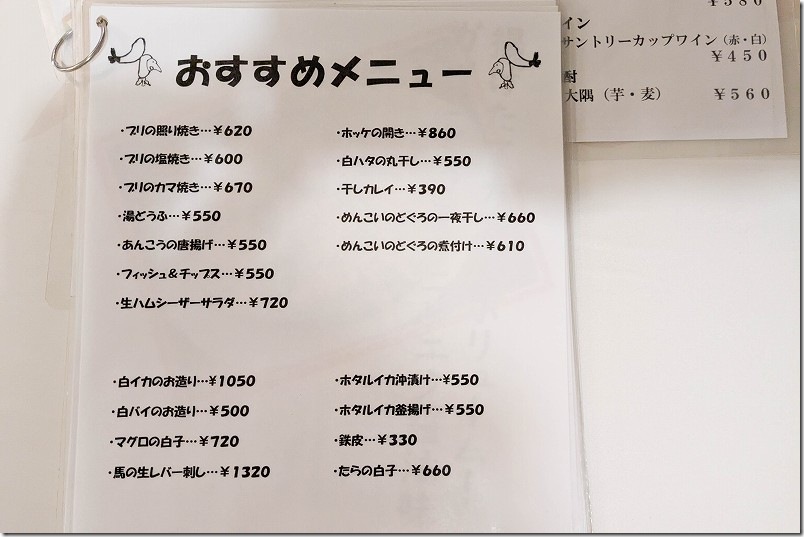 おすすめメニュー
・ブリの照り焼き…￥620
・ブリの塩焼き…￥600
・ブリのカマ焼き…￥670
・湯どうふ…￥550
・あんこうの唐揚げ…￥550
・フィッシュ＆チップス…￥550
・生ハムシーザーサラダ…￥720
・ホッケの開き…￥860
・白ハタの丸干し…￥550
・干しカレイ…￥390
・めんこいのどぐろの一夜干し…￥660
・めんこいのどぐろの煮付け…￥610
・白イカのお造り…￥1050
・白バイのお造り…￥500
・マグロの白子…￥720
・馬の生レバー刺し…￥1320
・ホタルイカ沖漬け…¥550
・ホタルイカ釜揚げ…￥550
・鉄皮…￥330
・たらの白子…￥660
￥580
イン
サントリーカップワイン（赤・白）
￥４５０
酎
大隅（芋・麦）　￥５６０